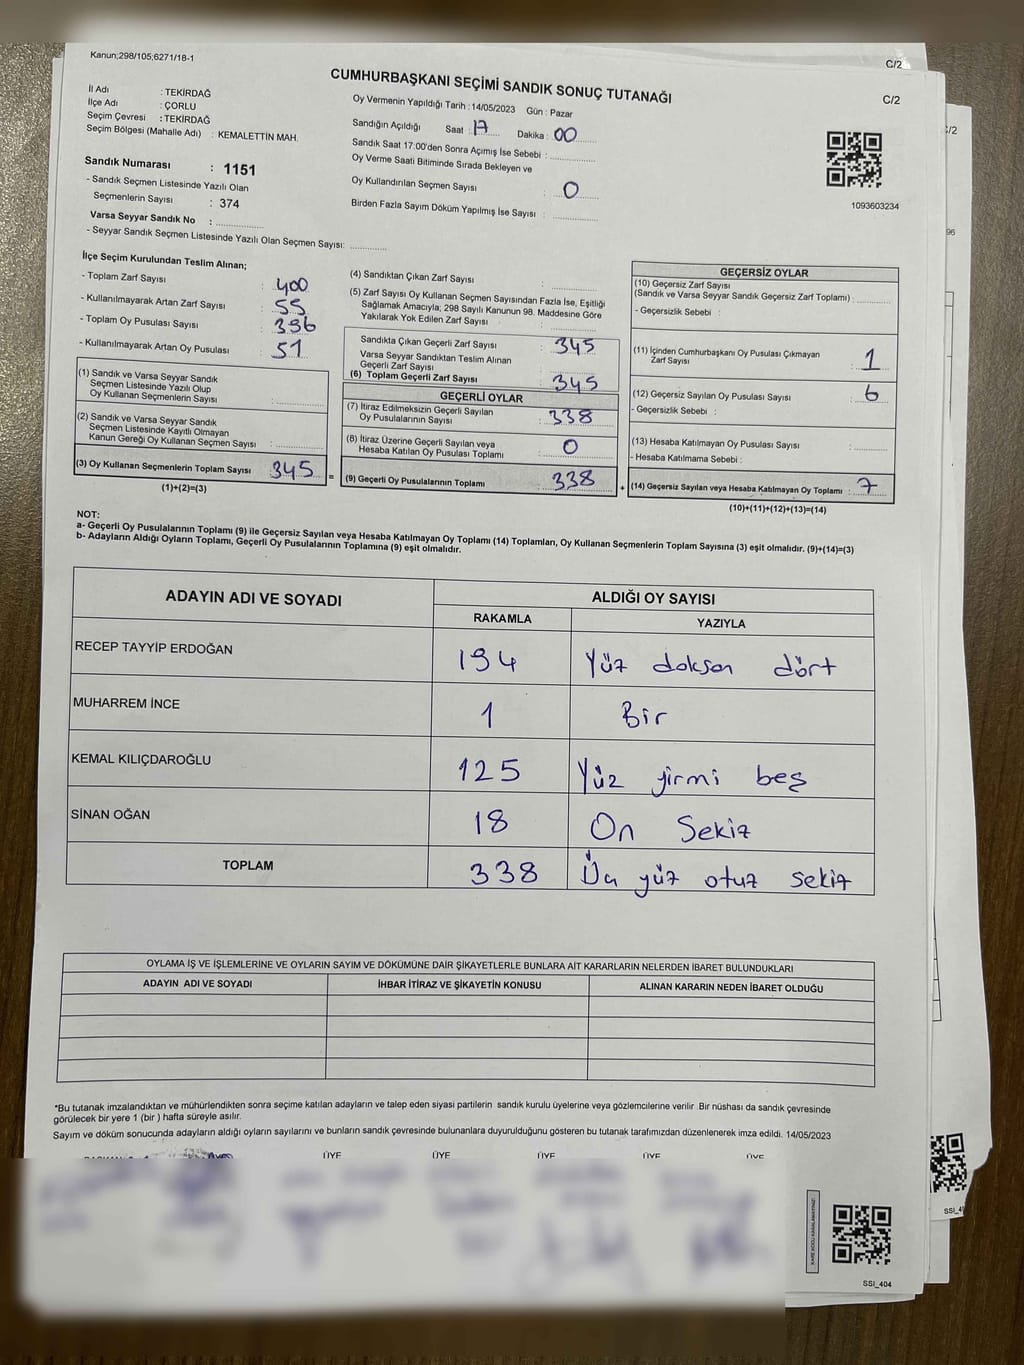 Kanun;298/105;6271/18-1
C/2
C/2
C/2
CUMHURBAŞKANI SEÇİMİ SANDIK SONUÇ TUTANAĞI
İl Adı : TEKİRDAĞ
İlçe Adı : ÇORLU
Seçim Çevresi : TEKİRDAĞ
Seçim Bölgesi (Mahalle Adı) : KEMALETTİN MAH.
Sandık Numarası : 1151
- Sandık Seçmen Listesinde Yazılı Olan
Seçmenlerin Sayısı : 374
Varsa Seyyar Sandık No :
- Seyyar Sandık Seçmen Listesinde Yazılı Olan Seçmen Sayısı:
Oy Vermenin Yapıldığı Tarih : 14/05/2023 Gün : Pazar
Sandığın Açıldığı Saat : 17 Dakika : 00
Sandık Saat 17:00'den Sonra Açımış İse Sebebi :
Oy Verme Saati Bitiminde Sırada Bekleyen ve
Oy Kullandırılan Seçmen Sayısı : 0
Birden Fazla Sayım Döküm Yapılmış İse Sayısı :
1093603234
96
İlçe Seçim Kurulundan Teslim Alınan;
- Toplam Zarf Sayısı : 400
- Kullanılmayarak Artan Zarf Sayısı : 55
- Toplam Oy Pusulası Sayısı : 396
- Kullanılmayarak Artan Oy Pusulası : 51
(1) Sandık ve Varsa Seyyar Sandık
Seçmen Listesinde Yazılı Olup
Oy Kullanan Seçmenlerin Sayısı :
(2) Sandık ve Varsa Seyyar Sandık
Seçmen Listesinde Kayıtlı Olmayan
Kanun Gereği Oy Kullanan Seçmen Sayısı :
(3) Oy Kullanan Seçmenlerin Toplam Sayısı 345 =
(1)+(2)=(3)
(4) Sandıktan Çıkan Zarf Sayısı :
(5) Zarf Sayısı Oy Kullanan Seçmen Sayısından Fazla İse, Eşitliği
Sağlamak Amacıyla; 298 Sayılı Kanunun 98. Maddesine Göre
Yakılarak Yok Edilen Zarf Sayısı :
Sandıkta Çıkan Geçerli Zarf Sayısı : 345
Varsa Seyyar Sandıktan Teslim Alınan
Geçerli Zarf Sayısı :
(6) Toplam Geçerli Zarf Sayısı : 345
GEÇERLİ OYLAR
(7) İtiraz Edilmeksizin Geçerli Sayılan
Oy Pusulalarının Sayısı : 338
(8) İtiraz Üzerine Geçerli Sayılan veya
Hesaba Katılan Oy Pusulası Toplamı : 0
(9) Geçerli Oy Pusulalarının Toplamı : 338 +
GEÇERSİZ OYLAR
(10) Geçersiz Zarf Sayısı
(Sandık ve Varsa Seyyar Sandık Geçersiz Zarf Toplamı) :
- Geçersizlik Sebebi :
(11) İçinden Cumhurbaşkanı Oy Pusulası Çıkmayan
Zarf Sayısı : 1
(12) Geçersiz Sayılan Oy Pusulası Sayısı : 6
- Geçersizlik Sebebi :
(13) Hesaba Katılmayan Oy Pusulası Sayısı :
- Hesaba Katılmama Sebebi :
(14) Geçersiz Sayılan veya Hesaba Katılmayan Oy Toplamı : 7
(10)+(11)+(12)+(13)=(14)
NOT:
a- Geçerli Oy Pusulalarının Toplamı (9) ile Geçersiz Sayılan veya Hesaba Katılmayan Oy Toplamı (14) Toplamları, Oy Kullanan Seçmenlerin Toplam Sayısına (3) eşit olmalıdır. (9)+(14)=(3)
b- Adayların Aldığı Oyların Toplamı, Geçerli Oy Pusulalarının Toplamına (9) eşit olmalıdır.
ADAYIN ADI VE SOYADI ALDIĞI OY SAYISI
RAKAMLA YAZIYLA
RECEP TAYYİP ERDOĞAN 194 Yüz doksan dört
MUHARREM İNCE 1 Bir
KEMAL KILIÇDAROĞLU 125 Yüz yirmi beş
SİNAN OĞAN 18 On Sekiz
TOPLAM 338 Üç yüz otuz sekiz
OYLAMA İŞ VE İŞLEMLERİNE VE OYLARIN SAYIM VE DÖKÜMÜNE DAİR ŞİKAYETLERLE BUNLARA AİT KARARLARIN NELERDEN İBARET BULUNDUKLARI
ADAYIN ADI VE SOYADI İHBAR İTİRAZ VE ŞİKAYETİN KONUSU ALINAN KARARIN NEDEN İBARET OLDUĞU
*Bu tutanak imzalandıktan ve mühürlendikten sonra seçime katılan adayların ve talep eden siyasi partilerin sandık kurulu üyelerine veya gözlemcilerine verilir Bir nüshası da sandık çevresinde
görülecek bir yere 1 (bir ) hafta süreyle asılır.
Sayım ve döküm sonucunda adayların aldığı oyların sayılarını ve bunların sandık çevresinde bulunanlara duyurulduğunu gösteren bu tutanak tarafımızdan düzenlenerek imza edildi. 14/05/2023
ÜYE ÜYE ÜYE ÜYE ÜYE
SSİ_404